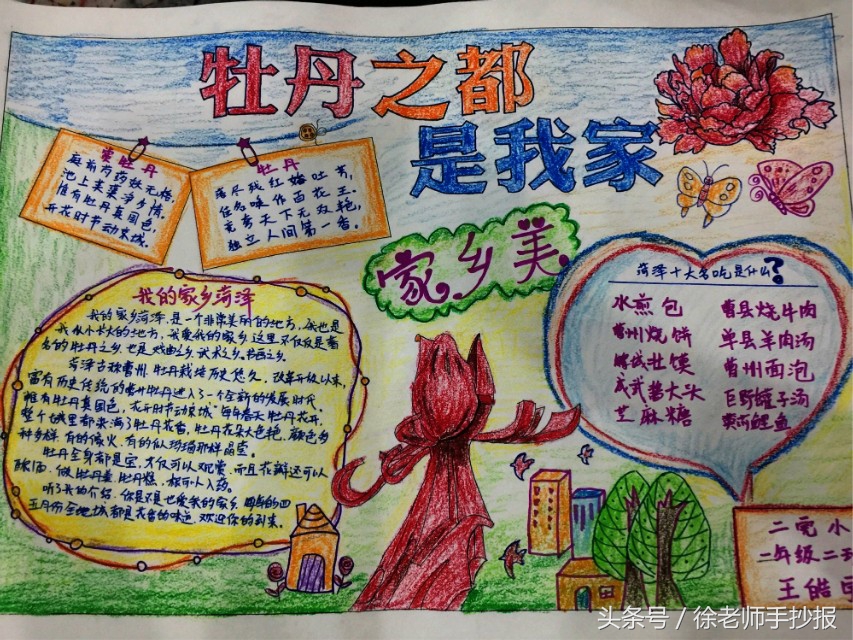 牡丹之都
是我家
赏牡丹
庭前芍药妖无格,
池上芙蕖净少情。
惟有牡丹真国色,
开花时节动京城。
牡丹
落尽残红始吐芳,
佳名唤作百花王。
竞夸天下无双艳,
独立人间第一香。
家乡美
我的家乡菏泽
我的家乡菏泽,是一个非常美丽的地方,那也是
我从小长大的地方,我爱我的家乡,这里不仅仅是有
名的牡丹之乡,也是戏曲之乡、武术之乡、书画之乡。
菏泽古称曹州,牡丹栽培历史悠久。改革开放以来,
富有历史传统的曹州牡丹进入了一个全新的发展时代。
惟有牡丹真国色,花开时节动京城。每年春天牡丹花开,
整个城里都来满了牡丹花香,牡丹花朵大色艳,颜色多
种多样,有的像火,有的似玛瑙那样晶莹。
牡丹全身都是宝,不仅可以观赏,而且花瓣还可以
酿酒,做牡丹羹、牡丹糕,根可入药。
听了我的介绍,你是不是也爱我的家乡,每年的四
五月份全地城都是花香的味道,欢迎你的到来。
菏泽十大名吃是什么?
水煎包
曹州烧饼
壮馍
成武酱大头
芝麻糖
曹县烧牛肉
单县羊肉汤
曹州面泡
巨野罐子汤
黄河鲤鱼
二完小
二年级二班
王皓
头条号 / 徐老师手抄报